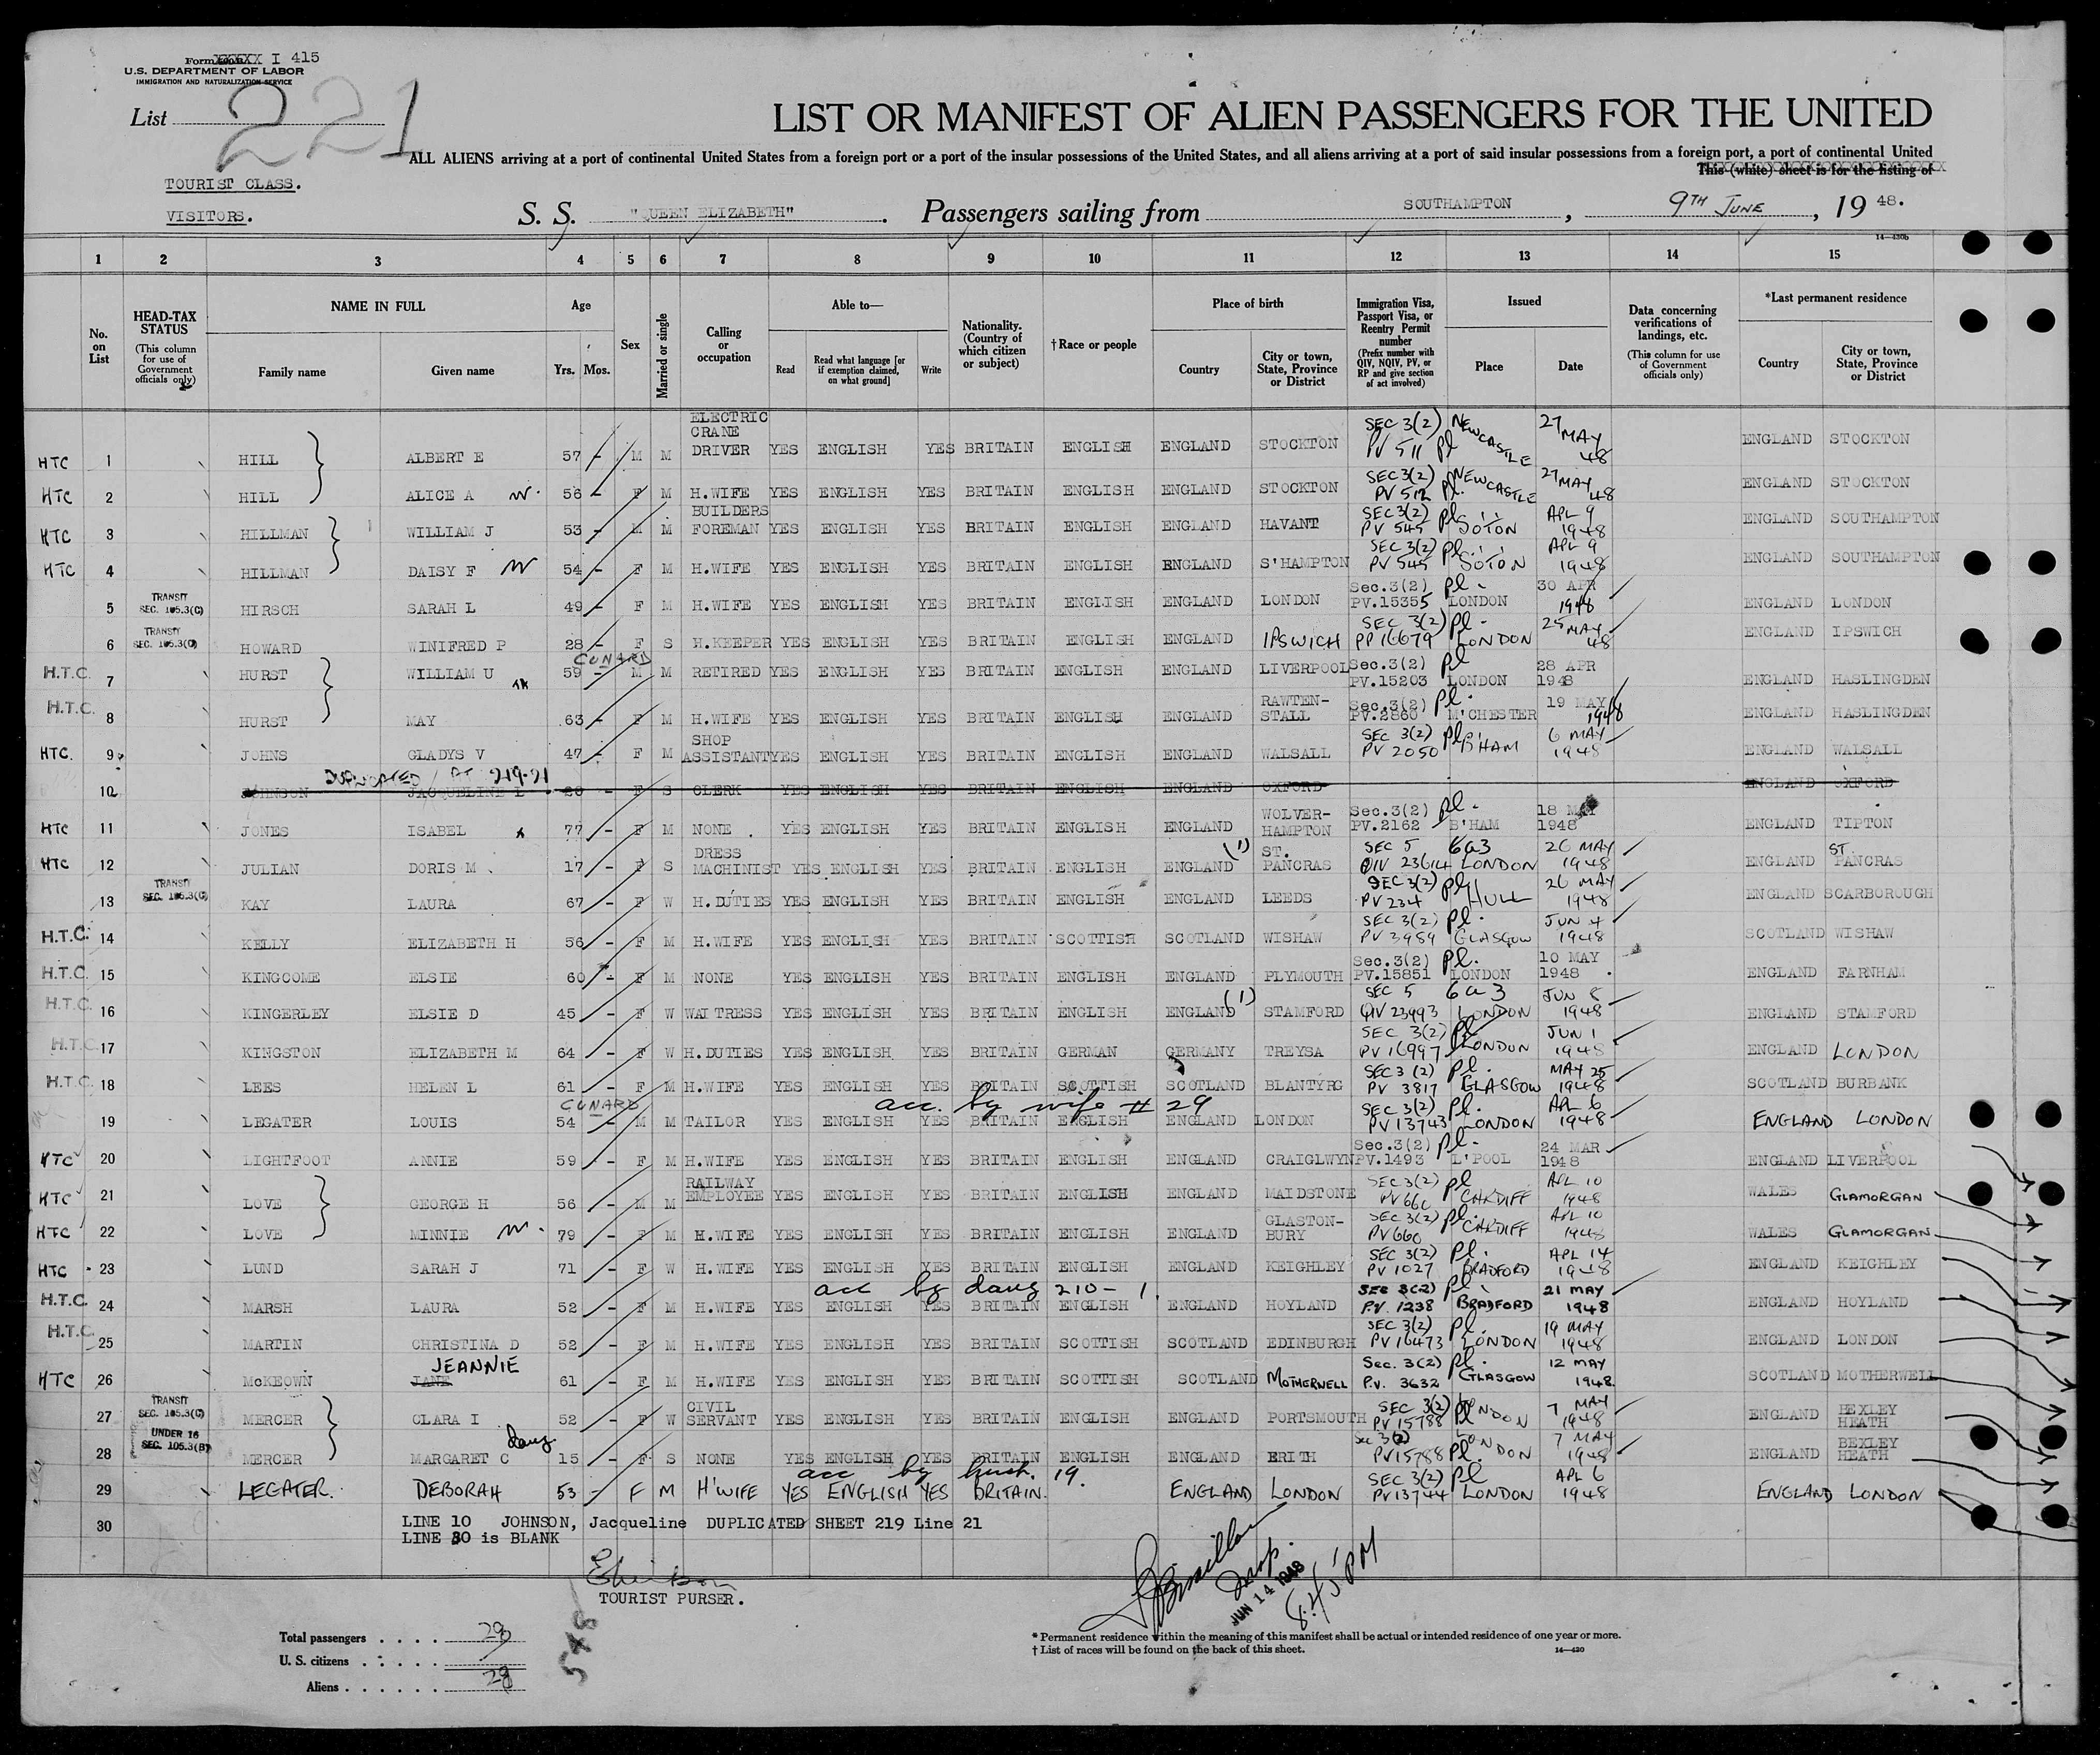 Form I 415
U.S. DEPARTMENT OF LABOR
IMMIGRATION AND NATURALIZATION SERVICE
List 221
LIST OR MANIFEST OF ALIEN PASSENGERS FOR THE UNITED
ALL ALIENS arriving at a port of continental United States from a foreign port or a port of the insular possessions of the United States, and all aliens arriving at a port of said insular possessions from a foreign port, a port of continental United
This (white) sheet is for the listing of
TOURIST CLASS.
VISITORS.
S. S. "QUEEN ELIZABETH". Passengers sailing from SOUTHAMPTON, 9TH JUNE, 19 48.
14—430b
1 2 3 4 5 6 7 8 9 10 11 12 13 14 15
No. on List
HEAD-TAX STATUS (This column for use of Government officials only)
NAME IN FULL Family name Given name
Age Yrs. Mos.
Sex
Married or single
Calling or occupation
Able to— Read Read what language [or if exemption claimed, on what ground] Write
Nationality. (Country of which citizen or subject)
†Race or people
Place of birth Country City or town, State, Province or District
Immigration Visa, Passport Visa, or Reentry Permit number (Prefix number with QIV, NQIV, PV, or RP and give section of act involved)
Issued Place Date
Data concerning verifications of landings, etc. (This column for use of Government officials only)
*Last permanent residence Country City or town, State, Province or District
HTC 1 HILL ALBERT E 57 - M M ELECTRIC CRANE DRIVER YES ENGLISH YES BRITAIN ENGLISH ENGLAND STOCKTON SEC 3(2) PV 511 pl NEWCASTLE 27 MAY 48 ENGLAND STOCKTON
HTC 2 HILL ALICE A W. 56 - F M H.WIFE YES ENGLISH YES BRITAIN ENGLISH ENGLAND STOCKTON SEC 3(2) PV 512 pl. NEWCASTLE 27 MAY 48 ENGLAND STOCKTON
HTC 3 HILLMAN WILLIAM J 53 - M M BUILDERS FOREMAN YES ENGLISH YES BRITAIN ENGLISH ENGLAND HAVANT SEC 3(2) PV 545 pl SOTON APL 9 1948 ENGLAND SOUTHAMPTON
HTC 4 HILLMAN DAISY F W 54 - F M H.WIFE YES ENGLISH YES BRITAIN ENGLISH ENGLAND S'HAMPTON SEC 3(2) PV 545 pl. SOTON APL 9 1948 ENGLAND SOUTHAMPTON
5 TRANSIT SEC. 105.3(C) HIRSCH SARAH L 49 - F M H.WIFE YES ENGLISH YES BRITAIN ENGLISH ENGLAND LONDON Sec.3(2) PV.15355 pl LONDON 30 APR 1948 ENGLAND LONDON
6 TRANSIT SEC. 105.3(C) HOWARD WINIFRED P 28 - F S H.KEEPER YES ENGLISH YES BRITAIN ENGLISH ENGLAND IPSWICH SEC 3(2) PP 16679 pl LONDON 25 MAY 48 ENGLAND IPSWICH
CUNARD
H.T.C. 7 HURST WILLIAM U 59 - M M RETIRED YES ENGLISH YES BRITAIN ENGLISH ENGLAND LIVERPOOL Sec.3(2) PV.15203 pl LONDON 28 APR 1948 ENGLAND HASLINGDEN
H.T.C. 8 HURST MAY 63 - F M H.WIFE YES ENGLISH YES BRITAIN ENGLISH ENGLAND RAWTEN-STALL Sec.3(2) PV.2860 pl. M'CHESTER 19 MAY 1948 ENGLAND HASLINGDEN
HTC. 9 JOHNS GLADYS V 47 - F M SHOP ASSISTANT YES ENGLISH YES BRITAIN ENGLISH ENGLAND WALSALL SEC 3(2) PV 2050 pl B'HAM 6 MAY 1948 ENGLAND WALSALL
DUPLICATED AT 219-21
10 JOHNSON JACQUELINE L 20 - F S CLERK YES ENGLISH YES BRITAIN ENGLISH ENGLAND OXFORD ENGLAND OXFORD
HTC 11 JONES ISABEL 77 - F M NONE . YES ENGLISH YES BRITAIN ENGLISH ENGLAND WOLVER-HAMPTON Sec.3(2) PV.2162 pl. B'HAM 18 MAY 1948 ENGLAND TIPTON
HTC 12 JULIAN DORIS M . 17 - F S DRESS MACHINIST YES ENGLISH YES BRITAIN ENGLISH ENGLAND (1) ST. PANCRAS SEC 5 QIV 23614 6a3 LONDON 26 MAY 1948 ENGLAND ST PANCRAS
13 TRANSIT SEC. 105.3(C) KAY LAURA 67 - F W H.DUTIES YES ENGLISH YES BRITAIN ENGLISH ENGLAND LEEDS SEC 3(2) PV 234 pl HULL 26 MAY 1948 ENGLAND SCARBOROUGH
H.T.C. 14 KELLY ELIZABETH H 56 - F M H.WIFE YES ENGLISH YES BRITAIN SCOTTISH SCOTLAND WISHAW SEC 3(2) PV 3989 pl. GLASGOW JUN 4 1948 SCOTLAND WISHAW
H.T.C. 15 KINGCOME ELSIE 60 - F M NONE YES ENGLISH YES BRITAIN ENGLISH ENGLAND PLYMOUTH Sec.3(2) PV.15851 pl. LONDON 10 MAY 1948 ENGLAND FARNHAM
H.T.C. 16 KINGERLEY ELSIE D 45 - F W WAITRESS YES ENGLISH YES BRITAIN ENGLISH ENGLAND (1) STAMFORD SEC 5 QIV 23993 6a3 LONDON JUN 8 1948 ENGLAND STAMFORD
H.T.C. 17 KINGSTON ELIZABETH M 64 - F W H.DUTIES YES ENGLISH YES BRITAIN GERMAN GERMANY TREYSA SEC 3(2) PV 16997 pl LONDON JUN 1 1948 ENGLAND LONDON
H.T.C. 18 LEES HELEN L 61 - F M H.WIFE YES ENGLISH YES BRITAIN SCOTTISH SCOTLAND BLANTYRG SEC 3(2) PV 3817 pl. GLASGOW MAY 25 1948 SCOTLAND BURBANK
CUNARD acc. by wife # 29
19 LEGATER LOUIS 54 - M M TAILOR YES ENGLISH YES BRITAIN ENGLISH ENGLAND LONDON SEC 3(2) PV 13743 pl. LONDON APL 6 1948 ENGLAND LONDON
HTC 20 LIGHTFOOT ANNIE 59 - F M H.WIFE YES ENGLISH YES BRITAIN ENGLISH ENGLAND CRAIGLWYN Sec.3(2) PV.1493 pl. L'POOL 24 MAR 1948 ENGLAND LIVERPOOL
HTC 21 LOVE GEORGE H 56 - M M RAILWAY EMPLOYEE YES ENGLISH YES BRITAIN ENGLISH ENGLAND MAIDSTONE SEC 3(2) PV 660 pl CARDIFF APL 10 1948 WALES GLAMORGAN
HTC 22 LOVE MINNIE W. 79 - F M H.WIFE YES ENGLISH YES BRITAIN ENGLISH ENGLAND GLASTON-BURY SEC 3(2) PV 660 pl. CARDIFF APL 10 1948 WALES GLAMORGAN
HTC 23 LUND SARAH J 71 - F W H.WIFE YES ENGLISH YES BRITAIN ENGLISH ENGLAND KEIGHLEY SEC 3(2) PV 1027 pl. BRADFORD APL 14 1948 ENGLAND KEIGHLEY
acc by daug 210 - 1.
H.T.C. 24 MARSH LAURA 52 - F M H.WIFE YES ENGLISH YES BRITAIN ENGLISH ENGLAND HOYLAND SEC 3(2) P.V. 1238 pl BRADFORD 21 MAY 1948 ENGLAND HOYLAND
H.T.C. 25 MARTIN CHRISTINA D 52 - F M H.WIFE YES ENGLISH YES BRITAIN SCOTTISH SCOTLAND EDINBURGH SEC 3(2) PV 16473 pl. LONDON 19 MAY 1948 ENGLAND LONDON
JEANNIE
HTC 26 McKEOWN JANE 61 - F M H.WIFE YES ENGLISH YES BRITAIN SCOTTISH SCOTLAND MOTHERWELL Sec. 3(2) P.V. 3632 pl. GLASGOW 12 MAY 1948 SCOTLAND MOTHERWELL
27 TRANSIT SEC. 105.3(C) MERCER CLARA I 52 - F W CIVIL SERVANT YES ENGLISH YES BRITAIN ENGLISH ENGLAND PORTSMOUTH SEC 3(2) PV 15788 pl LONDON 7 MAY 1948 ENGLAND BEXLEY HEATH
28 UNDER 16 SEC. 105.3(B) MERCER MARGARET C daug 15 - F S NONE YES ENGLISH YES BRITAIN ENGLISH ENGLAND ERITH Sec 3(2) PV15788 pl. LONDON 7 MAY 1948 ENGLAND BEXLEY HEATH
acc by husb. 19.
29 LEGATER. DEBORAH 53 - F M H'WIFE YES ENGLISH YES BRITAIN. ENGLAND LONDON SEC 3(2) PV13744 pl LONDON APL 6 1948 ENGLAND LONDON
30 LINE 10 JOHNSON, Jacqueline DUPLICATED SHEET 219 Line 21
LINE 30 is BLANK
TOURIST PURSER.
Insp.
JUN 14 1948
8.45 PM
548
Total passengers . . . . 28
U. S. citizens . . . . .
Aliens . . . . . . 28
* Permanent residence within the meaning of this manifest shall be actual or intended residence of one year or more.
† List of races will be found on the back of this sheet.
14—430